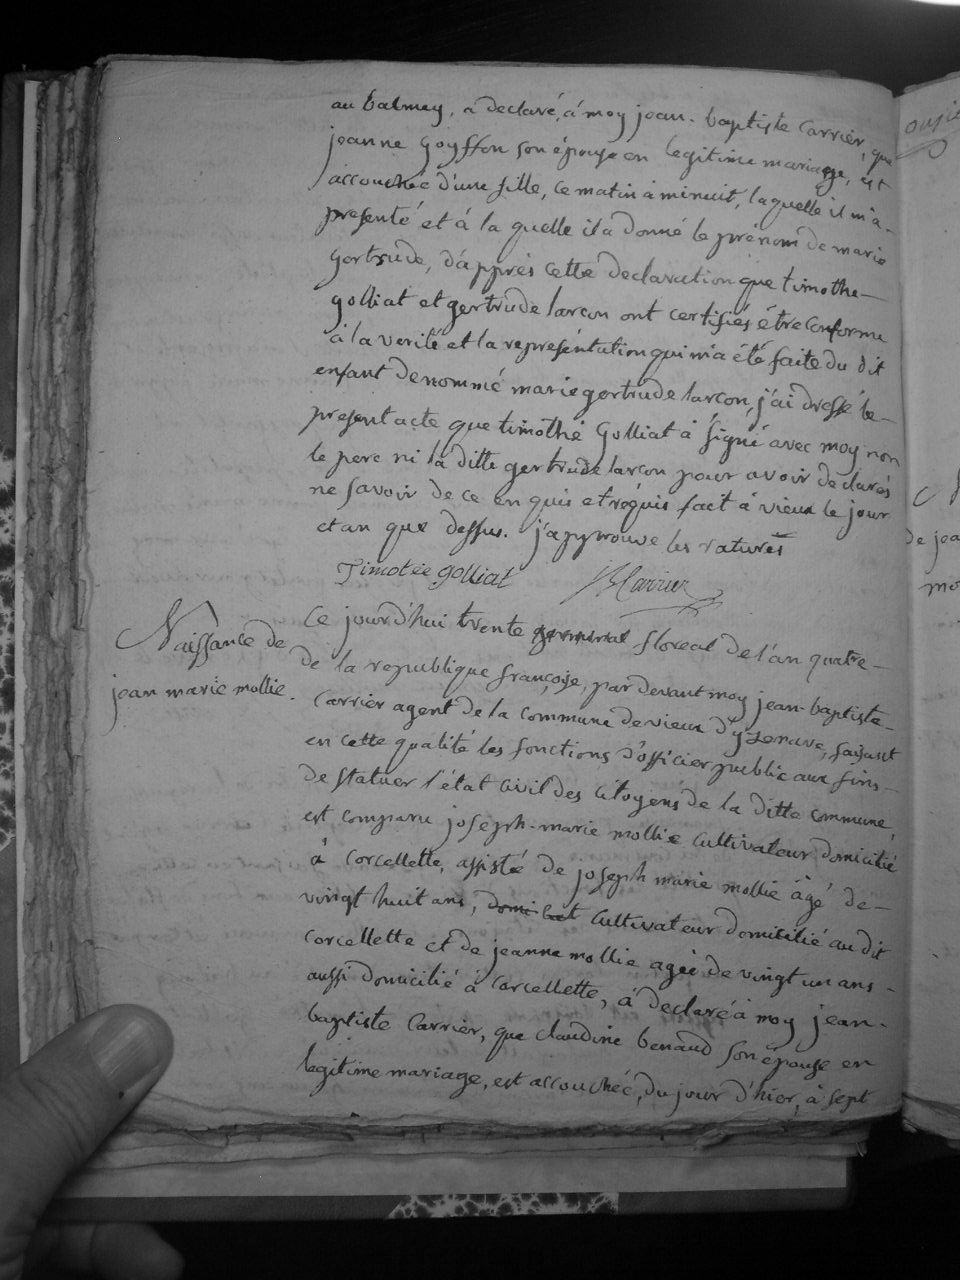 au balmey, a declaré, à moy jean-baptiste Carrier, que
jeanne Goyffon son épouse en legitime mariage, est
accouchée d'une fille, ce matin à minuit, laquelle il m'a-
presenté et à la quelle il a donné le prénom de marie
Gertrude, d'apprés cette declaration que timothe-
golliat et gertrude larcon ont certifiés être conforme
à la verité et la représentation qui m'a été faite du dit
enfant denommé marie gertrude larcon, j'ai dressé le-
present acte que timothé Golliat à signé avec moy non
le pere ni la ditte gertrude larcon pour avoir declarés
ne savoir de ce enquis et réquis fait à vieux le jour
et an que dessus. j'approuve les ratures
Timotée golliat JB Carrier
Naissance de
jean marie mollie.
Ce jourd'hui trente germinal floreal de l'an quatre-
de la republique françoise, par devant moy jean-baptiste-
Carrier agent de la commune de vieux d'yzenave, faisant
en cette qualité les fonctions d'officier public aux fins-
de statuer l'état civil des citoyens de la ditte commune,
est comparu joseph-marie mollie cultivateur domicilié
à corcellette, assisté de joseph marie mollie âgé de-
vingt huit ans, domicilié cultivateur domicilié au dit
corcellette et de jeanne mollie agée de vingt un ans-
aussi domicilié à corcellette, à declaré à moy jean-
baptiste Carrier, que claudine benaud son épouse en
legitime mariage, est accouchée, du jour d'hier, à sept
ousi
de jea
mo